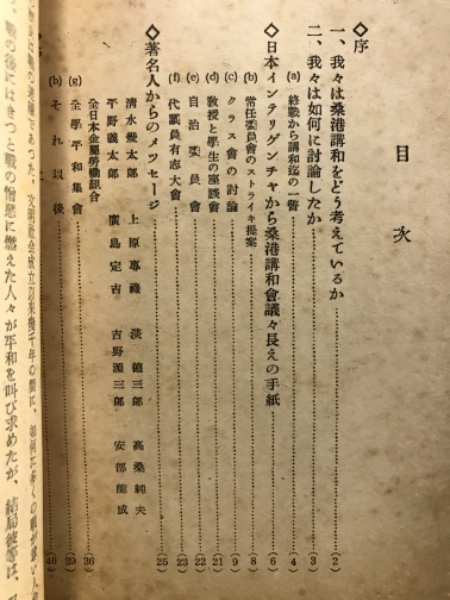 目次
◇序
一、我々は桑港講和をどう考えているか……(2)
二、我々は如何に討論したか……(3)
(a) 終戦から講和迄の一瞥……(4)
◇日本インテリゲンチャから桑港講和會議々長えの手紙……(6)
(b) 常任委員會のストライキ提案……(8)
(c) クラス會の討論……(9)
(d) 教授と學生の座談會……(21)
(e) 自治委員會……(22)
(f) 代議員有志大會……(23)
◇著名人からのメツセージ……(25)
清水幾太郎 上原專祿 淡德三郎 高桑純夫
平野義太郎 廣島定吉 吉野源三郎 安部能成
全日本金屬労働組合……(36)
(g) 全學平和集會……(39)
(h) それ以後……(40)
の戰が爲い人
戰の後にはきつと戰の憎悪に燃えた人々が平和を叫び求めたが、結局彼等は、